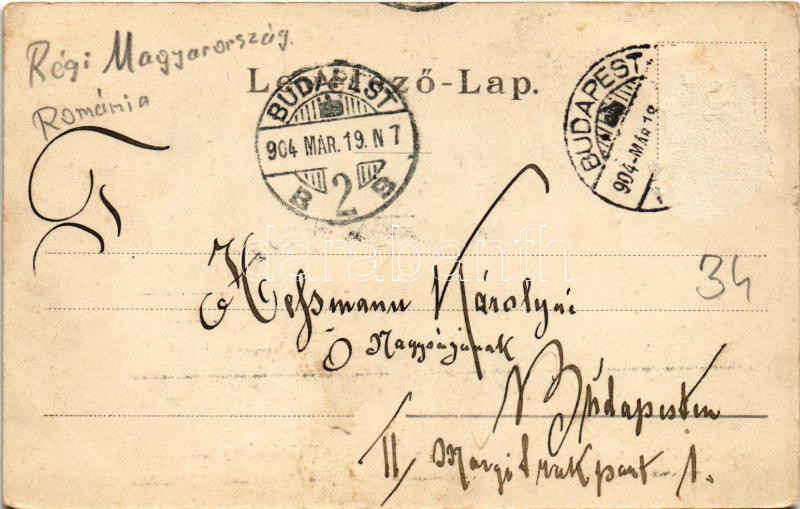 Régi Magyarország.
Románia
Le ző-Lap.
BUDAPEST
904 MÁR. 19. N 7
B 2 B
BUDAPEST
904-MÁR 18
34
T
Károlyné
Ő Nagyságának
Budapesten
II, Margit rakpart 1.
darabanth